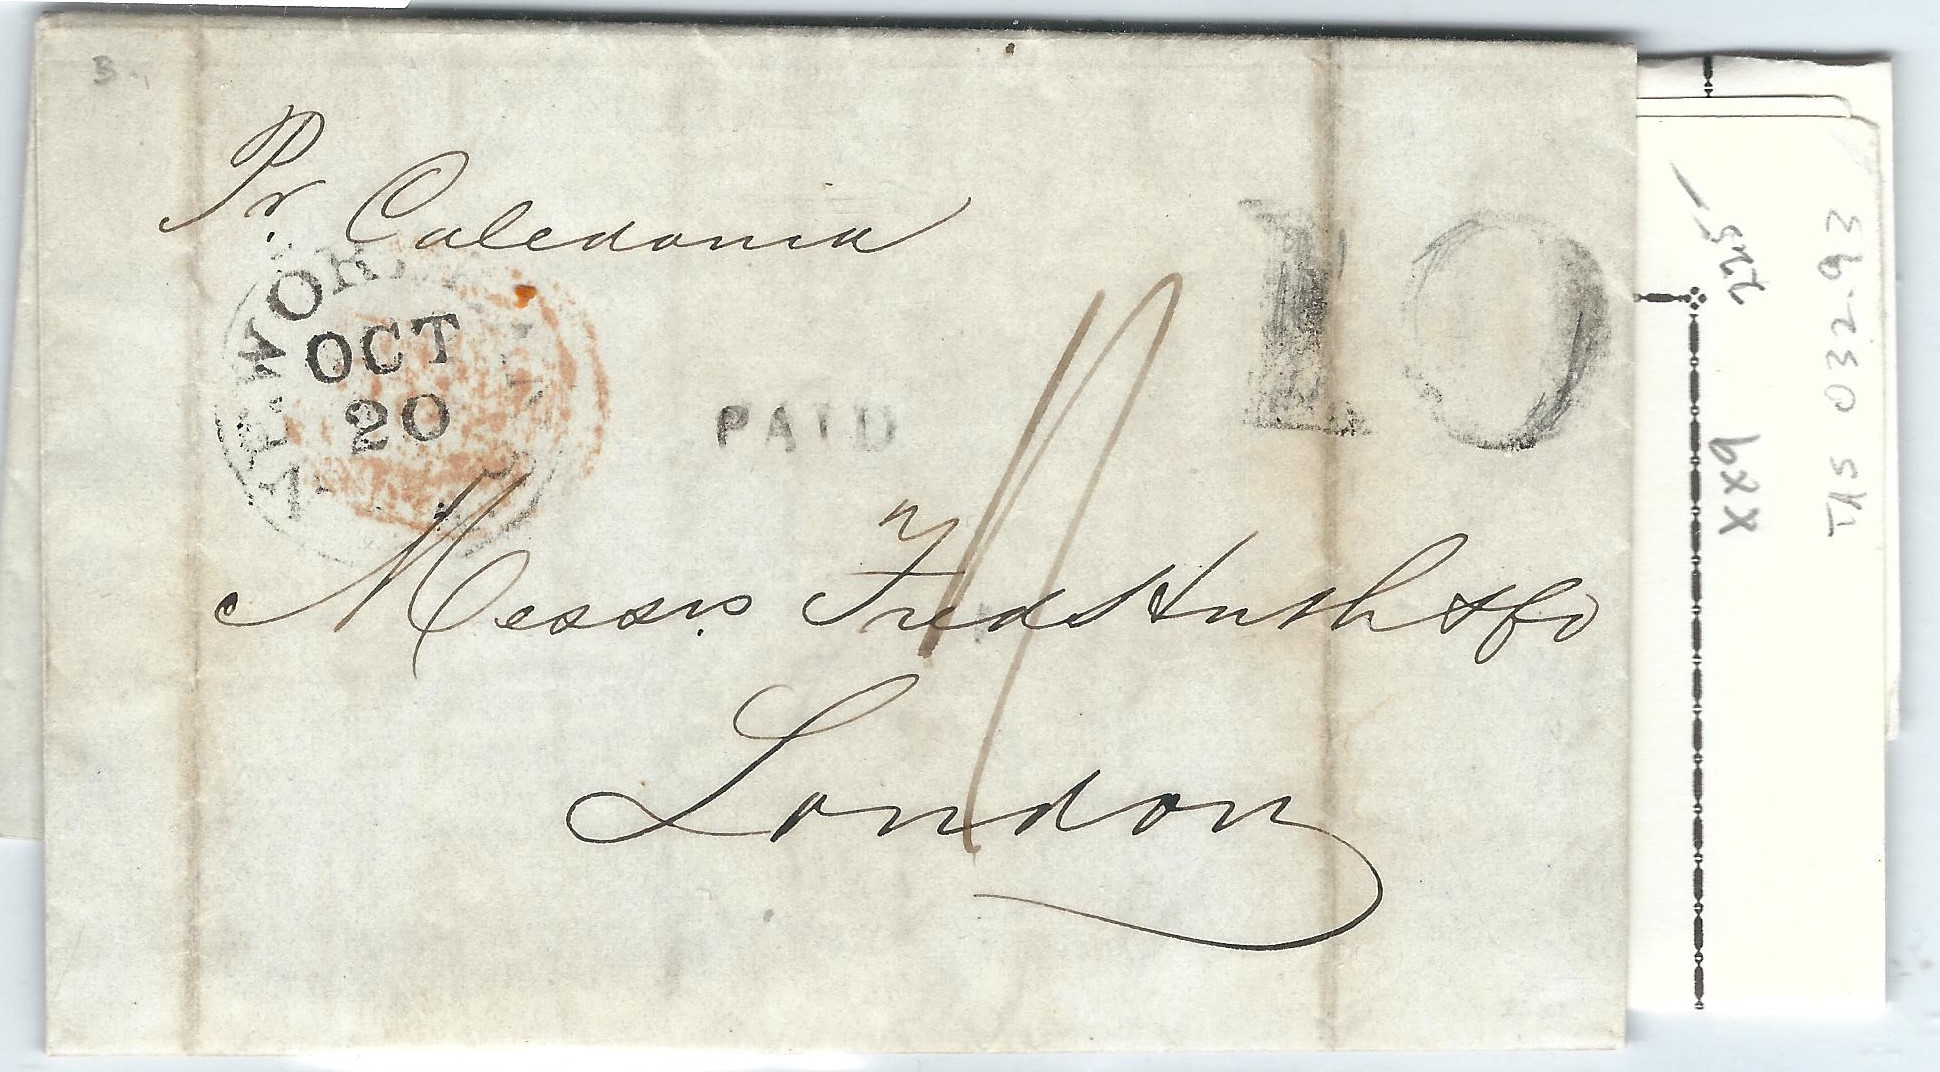 B
Pr. Caledonia
NEW ORLEANS
OCT
20
PAID
10
1/
Messrs Fredk Huth & Co
London
225
XX9
TAS 032.93